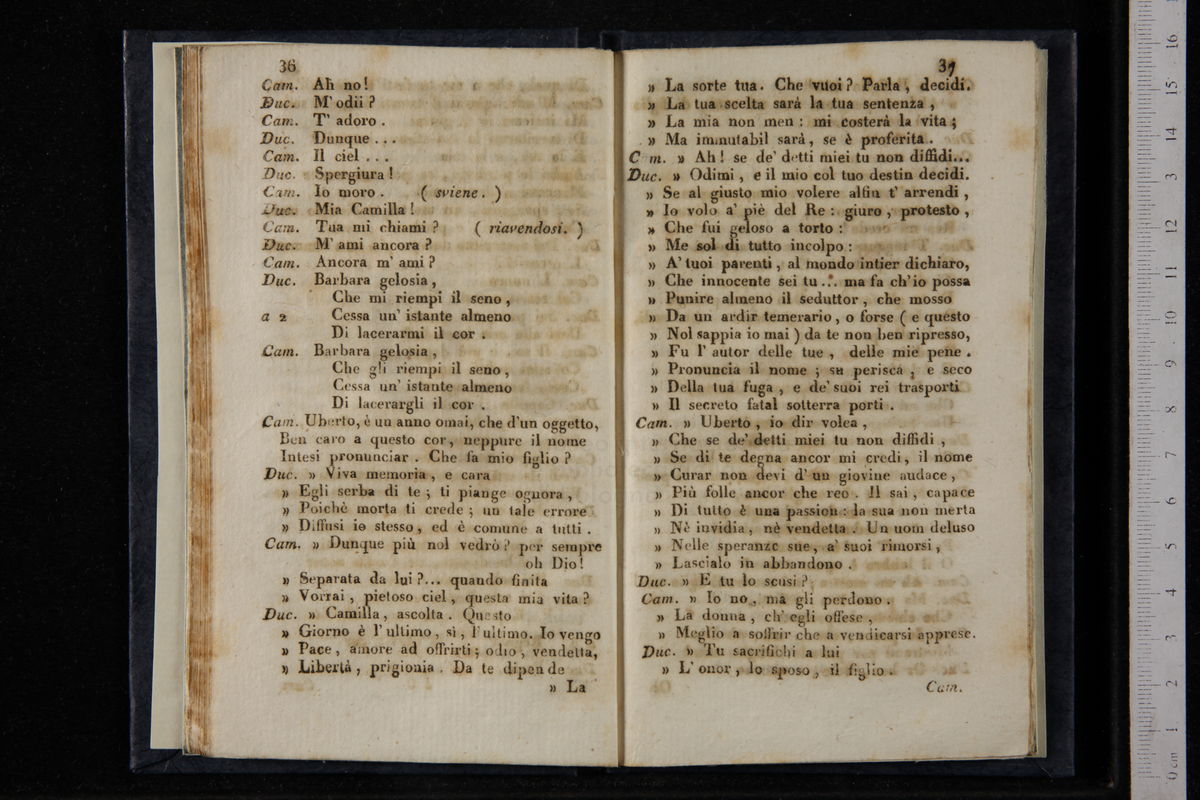 36
Cam. Ah no!
Duc. M' odii ?
Cam. T' adoro .
Duc. Dunque . . .
Cam. Il ciel . . .
Duc. Spergiura !
Cam. Io moro . ( sviene. )
Duc. Mia Camilla !
Cam. Tua mi chiami ? ( riavendosi. )
Duc. M' ami ancora ?
Cam. Ancora m' ami ?
Duc. Barbara gelosia ,
Che mi riempi il seno ,
a 2 Cessa un' istante almeno
Di lacerarmi il cor .
Cam. Barbara gelosia ,
Che gli riempi il seno ,
Cessa un' istante almeno
Di lacerargli il cor .
Cam. Uberto, è un anno omai, che d'un oggetto,
Ben caro a questo cor, neppure il nome
Intesi pronunciar . Che fa mio figlio ?
Duc. » Viva memoria , e cara
» Egli serba di te ; ti piange ognora ,
» Poichè morta ti crede ; un tale errore
» Diffusi io stesso, ed è comune a tutti .
Cam. » Dunque più nol vedrò ? per sempre
oh Dio!
» Separata da lui ?... quando finita
» Vorrai , pietoso ciel , questa mia vita ?
Duc. » Camilla , ascolta . Questo
» Giorno è l' ultimo , sì , l'ultimo. Io vengo
» Pace , amore ad offrirti ; odio , vendetta,
» Libertà , prigionia . Da te dipende
» La
37
» La sorte tua. Che vuoi ? Parla , decidi.
» La tua scelta sarà la tua sentenza ,
» La mia non men : mi costerà la vita ;
» Ma immutabil sarà, se è proferita .
C m. » Ah ! se de' detti miei tu non diffidi...
Duc. » Odimi , e il mio col tuo destin decidi.
» Se al giusto mio volere alfin t' arrendi ,
» Io volo a' piè del Re : giuro , protesto ,
» Che fui geloso a torto :
» Me sol di tutto incolpo :
» A' tuoi parenti , al mondo intier dichiaro,
» Che innocente sei tu ... ma fa ch'io possa
» Punire almeno il seduttor , che mosso
» Da un ardir temerario , o forse ( e questo
» Nol sappia io mai ) da te non ben ripresso,
» Fu l' autor delle tue , delle mie pene .
» Pronuncia il nome ; su perisca , e seco
» Della tua fuga , e de' suoi rei trasporti
» Il secreto fatal sotterra porti .
Cam. » Uberto , io dir volea ,
» Che se de' detti miei tu non diffidi ,
» Se di te degna ancor mi credi , il nome
» Curar non devi d' un giovine audace ,
» Più folle ancor che reo . Il sai , capace
» Di tutto è una passion : la sua non merta
» Nè invidia , nè vendetta . Un uom deluso
» Nelle speranze sue, a' suoi rimorsi ,
» Lascialo in abbandono .
Duc. » E tu lo scusi ?
Cam. » Io no , ma gli perdono .
» La donna , ch' egli offese ,
» Meglio a soffrir che a vendicarsi apprese.
Duc. » Tu sacrifichi a lui
» L' onor , lo sposo , il figlio .
Cam.
0 cm 1 2 3 4 5 6 7 8 9 10 11 12 13 14 15 16